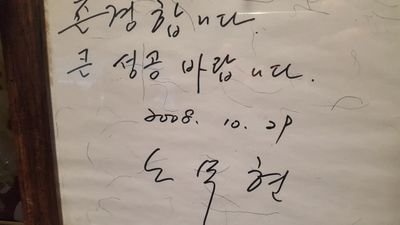 존경합니다.
큰 성공 바랍니다.
2008. 10. 29
노무현